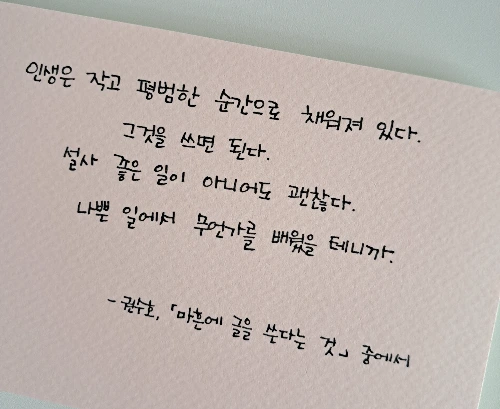 인생은 작고 평범한 순간으로 채워져 있다.
그것을 쓰면 된다.
설사 좋은 일이 아니어도 괜찮다.
나쁜 일에서 무언가를 배웠을 테니까.
- 권수호, 「마흔에 글을 쓴다는 것」 중에서